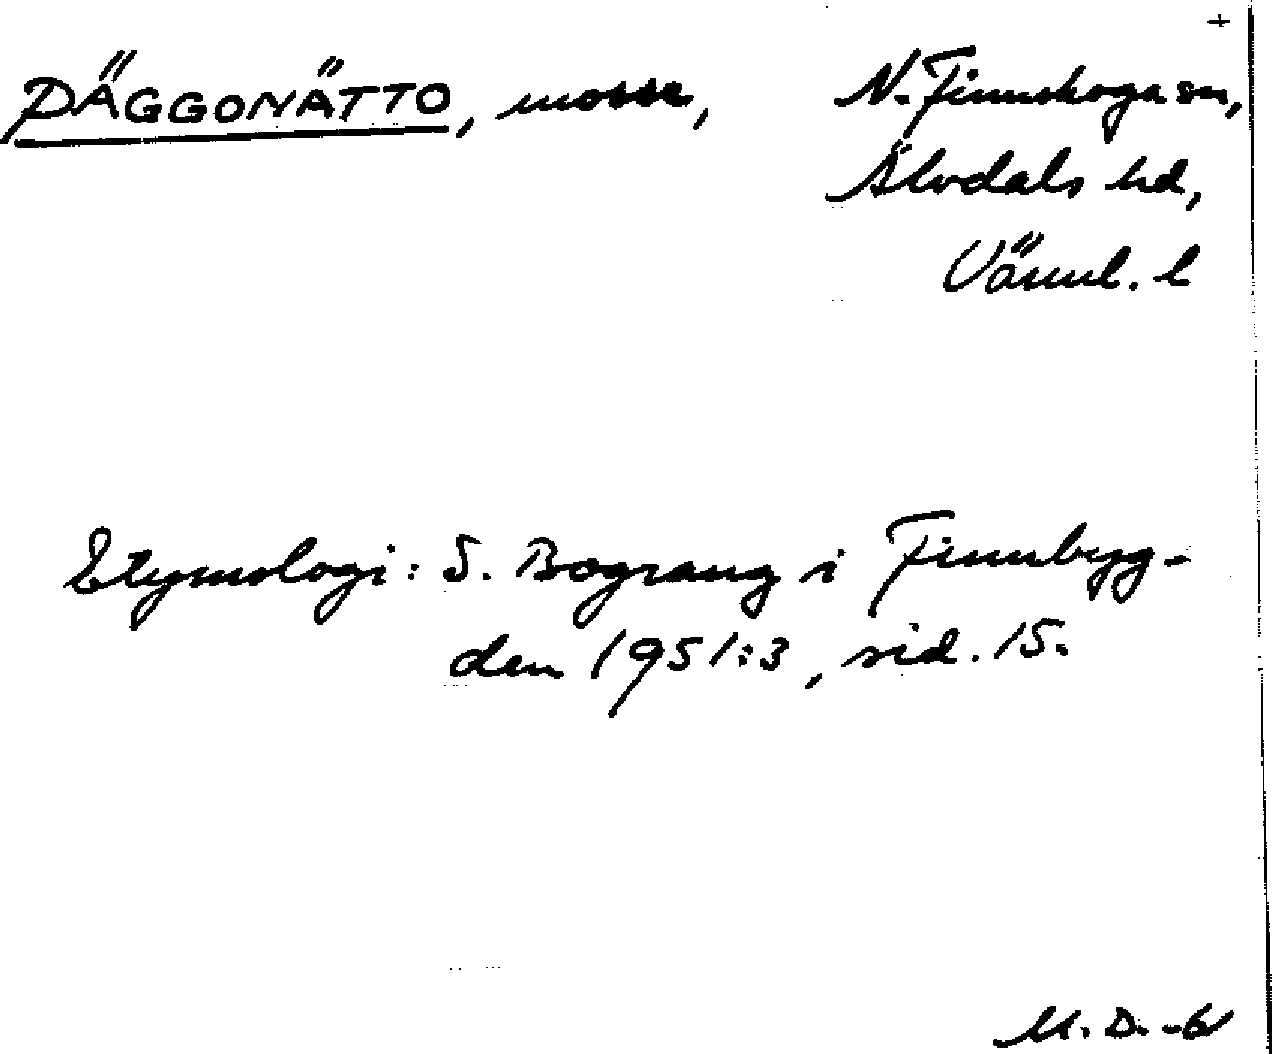 +
DÄGGONÄTTO, mosse, N. Finnskoga sn,
Älvdals hd,
Värml. l
Etymologi: S. Bograng i Finnbyg-
den 1951:3, sid. 15.
M. D.